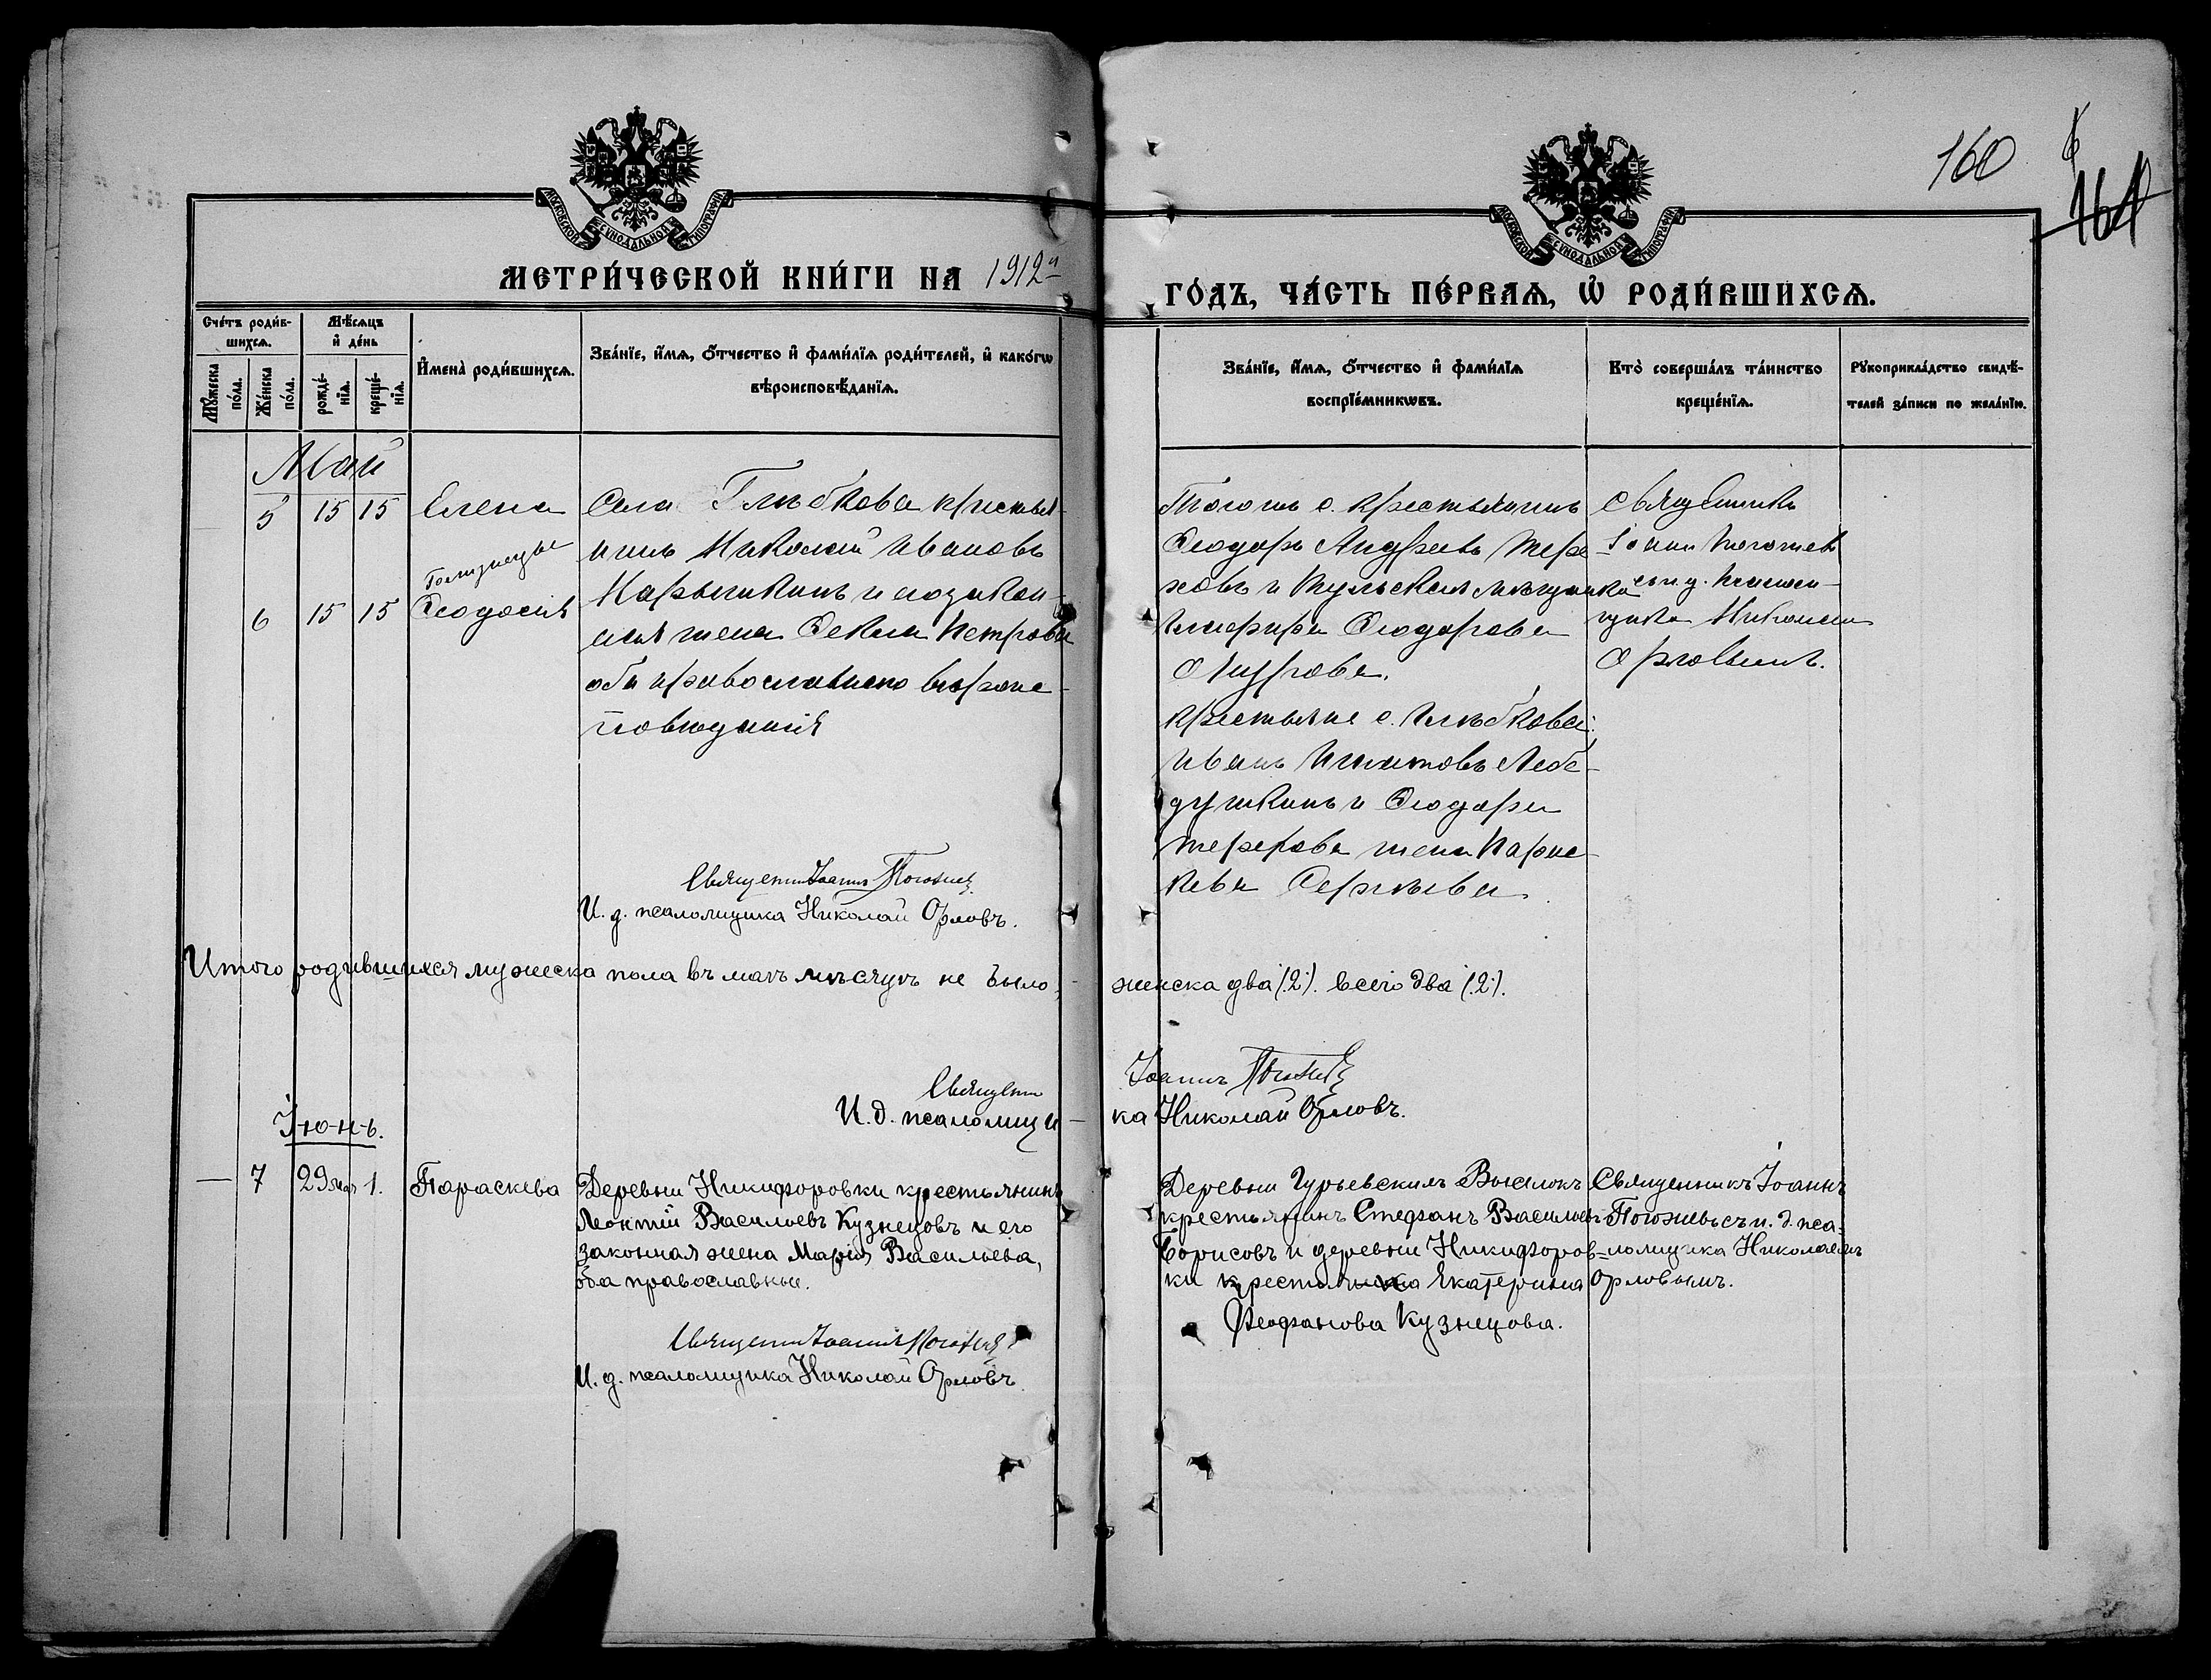 160
161
МОСКОВСКОЙ СѴНОДАЛЬНОЙ ТИПОГРАФІИ
МОСКОВСКОЙ СѴНОДАЛЬНОЙ ТИПОГРАФІИ
МЕТРИ́ЧЕСКОЙ КНИ́ГИ НА 1912й
ГО́ДЪ, ЧА́СТЬ ПЕ́РВАѦ, Ѡ҆ РОДИ́ВШИХСѦ.
Сче́тъ роди́в-
шихсѧ.
Мѣ́сѧцъ
и҆ де́нь
Мꙋ́жеска
по́ла.
Же́нска
по́ла.
рожде́-
нїѧ.
креще́-
нїѧ.
И҆мена̀ роди́вшихсѧ.
Зва́нїе, и҆́мѧ, ѻ҆́тчество и҆ фами́лїѧ роди́телей, и҆ како́гѡ
вѣроисповѣ́данїѧ.
Зва́нїе, и҆́мѧ, ѻ҆́тчество и҆ фами́лїѧ
воспрїе́мникѡвъ.
Кто̀ соверша́лъ та́инство
креще́нїѧ.
Рꙋкоприкла́дство свидѣ́-
телей за́писи по жела́нїю.
Май
5 15 15 Елена
Близнецы
6 15 15 Ѳеодосія
Села Глѣбкова крестья-
нинъ Николай Ивановъ
Нарышкинъ и его закон-
ная жена Ѳекла Петрова
оба православнаго вѣроис-
повѣданія
Тогоже с. крестьянинъ
Ѳеодоръ Андреевъ
и Тульская мѣщанка
Глафира Ѳеодорова
крестьяне с. Глѣбкова:
Иванъ Игнатовъ Лебе-
душкинъ и Ѳеодора
жена Параске-
ва Сергѣева
Священникъ
Іоаннъ Погожевъ
съ и. д. псалом-
щика Николаемъ
Орловымъ.
Священн. Іоаннъ Погожевъ
И. д. псаломщика Николай Орловъ.
Итого родившихся мужеска пола въ маѣ мѣсяцѣ не было, женска два (2). всего два (2).
Священн. Іоаннъ Погожевъ
И. д. псаломщи-ка Николай Орловъ.
Іюнь.
— 7 29 мая 1. Параскева
Деревни Никифоровки крестьянинъ
Леонтій Васильевъ Кузнецовъ и его
законная жена Марія Васильева,
оба православные.
Деревни Гурьевскихъ Выселокъ
крестьянинъ Стефанъ Васильевъ
Борисовъ и деревни Никифоров-
ки крестьянка Екатерина
Ѳеофанова Кузнецова.
Священникъ Іоаннъ
Погожевъ съ и. д. пса-
ломщика Николаемъ
Орловымъ.
Священн. Іоаннъ Погожевъ
И. д. псаломщика Николай Орловъ